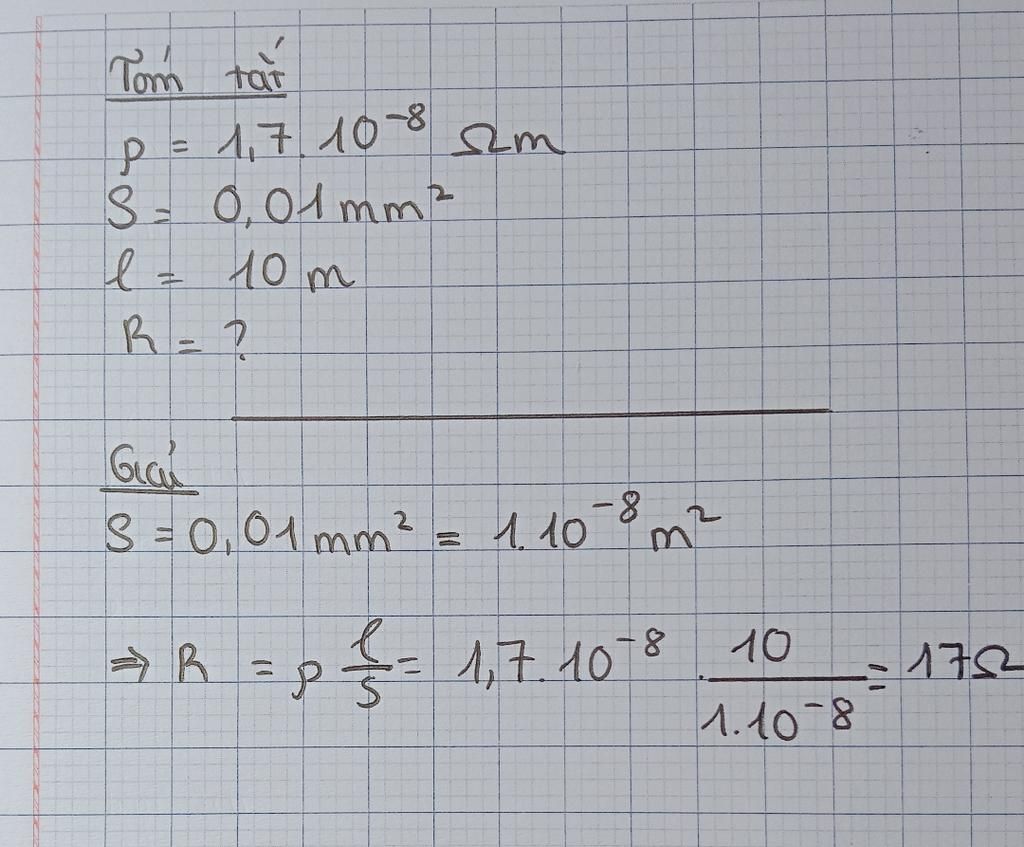 Tóm tắt
ρ = 1,7.10⁻⁸ Ωm
S = 0,01mm²
l = 10 m
R = ?
Giải
S = 0,01mm² = 1.10⁻⁸ m²
⇒ R = ρ l/S = 1,7.10⁻⁸ . 10/1.10⁻⁸ = 17Ω